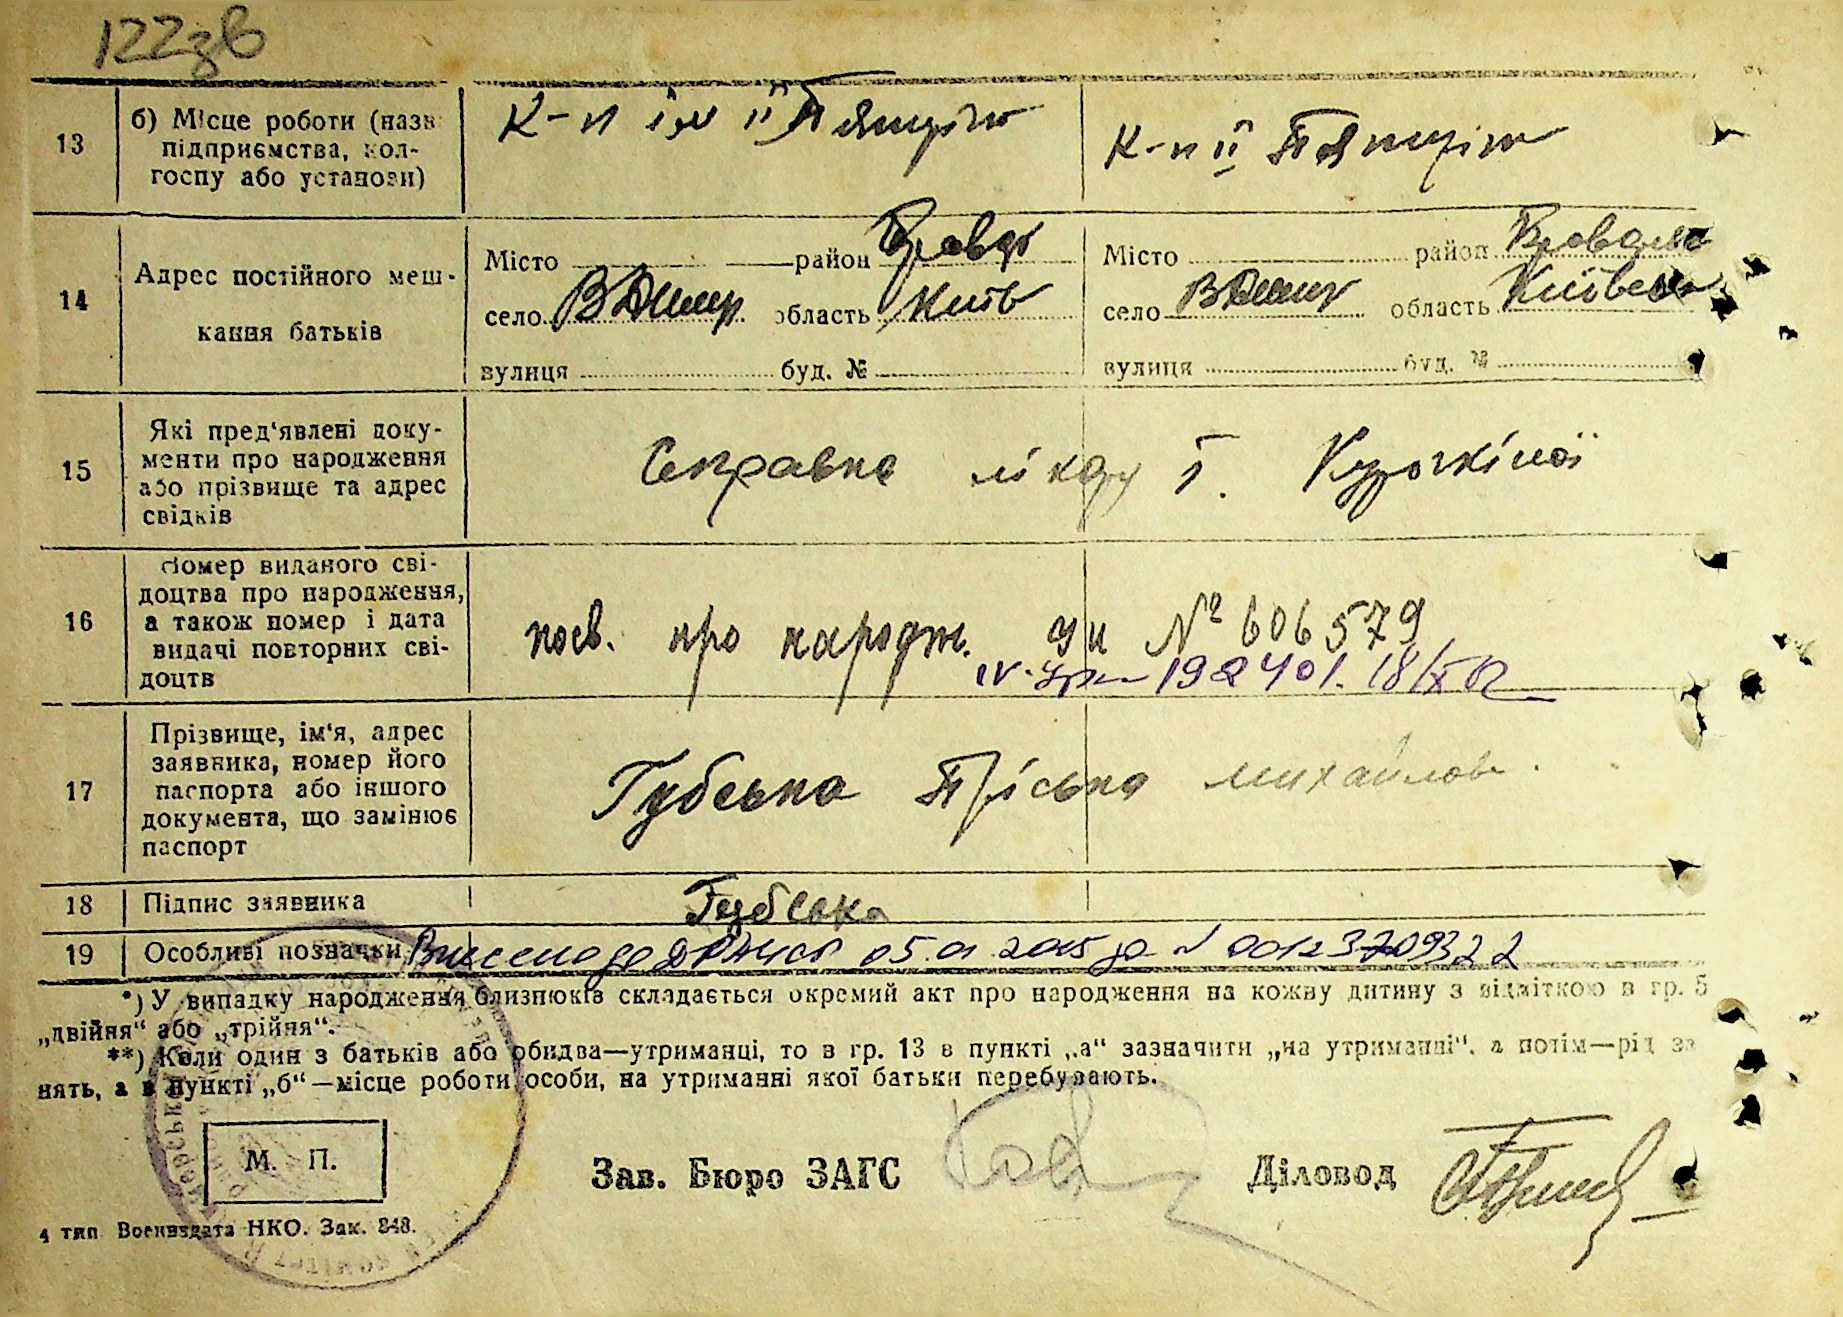 122зв
13 б) Місце роботи (назв
підприємства, кол-
госпу або установи)
К-п ім ІІ Пятиріч К-п ІІ Пятиріч
14 Адрес постійного меш-
кання батьків
Місто район Бровар Місто район Бровар
село В Димер область Київ село В Димер область Київськ
вулиця буд. № вулиця буд. №
15 Які пред'явлені доку-
менти про народження
або прізвище та адрес
свідків
Справка лікаря г. Курочкіної
16 Номер виданого сві-
доцтва про народження,
а також номер і дата
видачі повторних сві-
доцтв
посв. про народж. УИ № 606579
IV-УР 192401. 18/IX
17 Прізвище, ім'я, адрес
заявника, номер його
паспорта або іншого
документа, що замінює
паспорт
Губська Пріська Михайлов.
18 Підпис заявника Губська
19 Особливі позначки Внесено до ДРАЦСГ 05.01.2015 за № 00123709322
*) У випадку народження близнюків складається окремий акт про народження на кожну дитину з відміткою в гр. 5
„двійня“ або „трійня“.
**) Коли один з батьків або обидва—утриманці, то в гр. 13 в пункті „а“ зазначити „на утриманні“, а потім—рід за
нять, а в пункті „б“—місце роботи особи, на утриманні якої батьки перебувають.
М. П. Зав. Бюро ЗАГС Діловод
4 тип Воениздата НКО. Зак. 848.